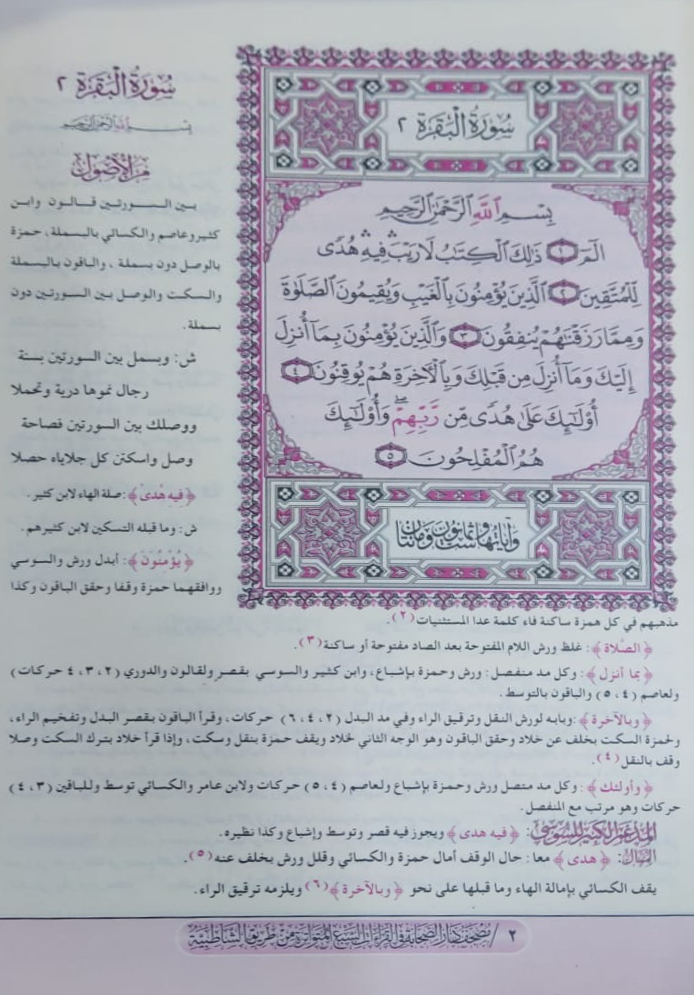 سُورَةُ الْبَقَرَةِ ٢
بِسْمِ اللَّهِ الرَّحْمَنِ الرَّحِيمِ
الٓمٓ ١ ذَٰلِكَ الْكِتَٰبُ لَا رَيْبَ ۛ فِيهِ ۛ هُدًى
لِّلْمُتَّقِينَ ٢ الَّذِينَ يُؤْمِنُونَ بِالْغَيْبِ وَيُقِيمُونَ الصَّلَوٰةَ
وَمِمَّا رَزَقْنَٰهُمْ يُنفِقُونَ ٣ وَالَّذِينَ يُؤْمِنُونَ بِمَا أُنزِلَ
إِلَيْكَ وَمَا أُنزِلَ مِن قَبْلِكَ وَبِالْآخِرَةِ هُمْ يُوقِنُونَ ٤
أُوْلَٰٓئِكَ عَلَىٰ هُدًى مِّن رَّبِّهِمْ ۖ وَأُوْلَٰٓئِكَ
هُمُ الْمُفْلِحُونَ ٥
وآياتها ست وثمانون ومائتان
سُورَةُ الْبَقَرَةِ ٢
بسم الله الرحمن الرحيم
من الأصول
بين السورتين قالون وابن
كثير وعاصم والكسائي بالبسملة، حمزة
بالوصل دون بسملة، والباقون بالبسملة
والسكت والوصل بين السورتين دون
بسملة.
ش: وبسمل بين السورتين بسنة
رجال نموها درية وتحملا
ووصلك بين السورتين فصاحة
وصل واسكتن كل جلاياه حصلا
﴿فِيهِ هُدًى﴾: صلة الهاء لابن كثير.
ش: وما قبله التسكين لابن كثيرهم.
﴿يُؤْمِنُونَ﴾: أبدل ورش والسوسي
ووافقهما حمزة وقفا وحقق الباقون وكذا
مذهبهم في كل همزة ساكنة فاء كلمة عدا المستثنيات (٢).
﴿الصَّلاة﴾: غلظ ورش اللام المفتوحة بعد الصاد مفتوحة أو ساكنة (٣).
﴿بما أنزل﴾: وكل مد منفصل: ورش وحمزة بإشباع، وابن كثير والسوسي بقصر ولقالون والدوري (٢، ٣، ٤ حركات)
ولعاصم (٤، ٥) والباقون بالتوسط.
﴿وبالآخرة﴾: وبابه لورش النقل وترقيق الراء وفي مد البدل (٢، ٤، ٦) حركات، وقرأ الباقون بقصر البدل وتفخيم الراء،
ولحمزة السكت بخلف عن خلاد وحقق الباقون وهو الوجه الثاني لخلاد ويقف حمزة بنقل وسكت، وإذا قرأ خلاد بترك السكت وصلا
وقف بالنقل (٤).
﴿وأولئك﴾: وكل مد متصل ورش وحمزة بإشباع ولعاصم (٤، ٥) حركات ولابن عامر والكسائي توسط وللباقين (٣، ٤)
حركات وهو مرتب مع المنفصل.
المدغم الكبير للسوسي: ﴿فيه هدى﴾ ويجوز فيه قصر وتوسط وإشباع وكذا نظيره.
الممال: ﴿هدى﴾ معا: حال الوقف أمال حمزة والكسائي وقلل ورش بخلف عنه (٥).
يقف الكسائي بإمالة الهاء وما قبلها على نحو ﴿وبالآخرة﴾ (٦) ويلزمه ترقيق الراء.
٢ / مصحف دار الصحابة في القراءات السبع المتواترة من طريق الشاطبية